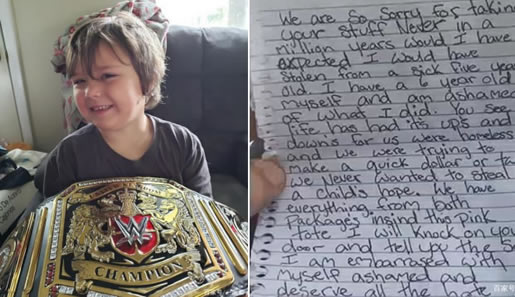 W
CHAMPION
We are so sorry for taking
your stuff Never in a
million years would I have
expected I would have
stolen from a sick five year
old. I have a 6 year old
myself and am ashamed
of what I did. You see
life has had its ups and
downs for us were homeless
and we were trying to
make a quick dollar or
we never wanted to steal
a child's hope. We have
everything from both
Packages, insind the pink
tote I will knock on you
door and tell you the
I am embarrased with
myself ashamed and
deserve all the hate
百家号
百家号